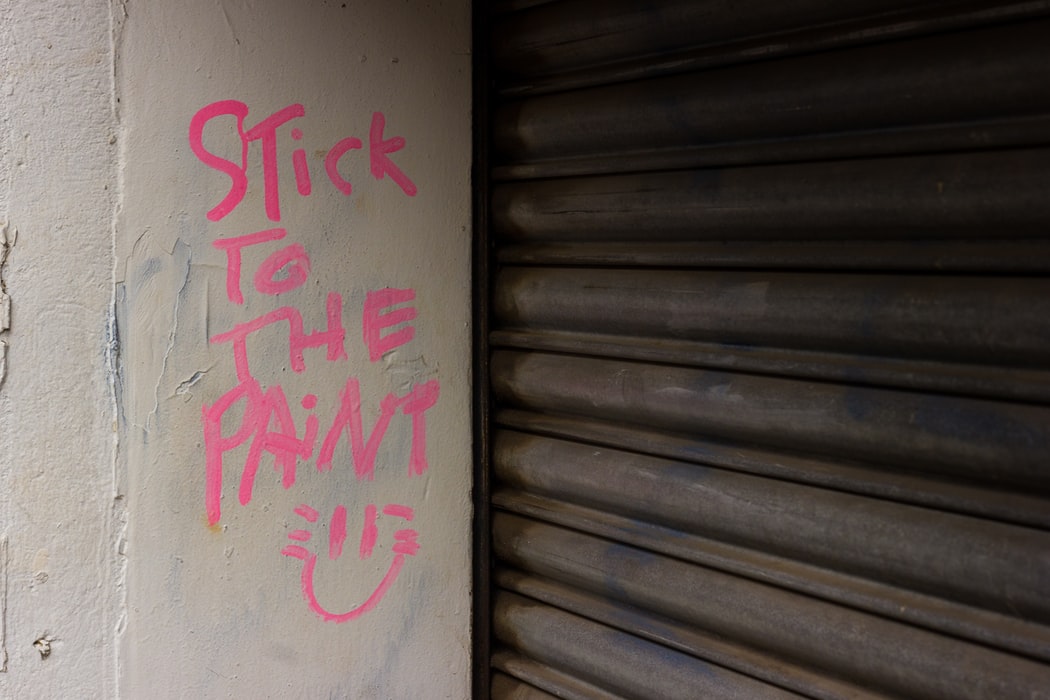 STick
TO
THE
PAiNT